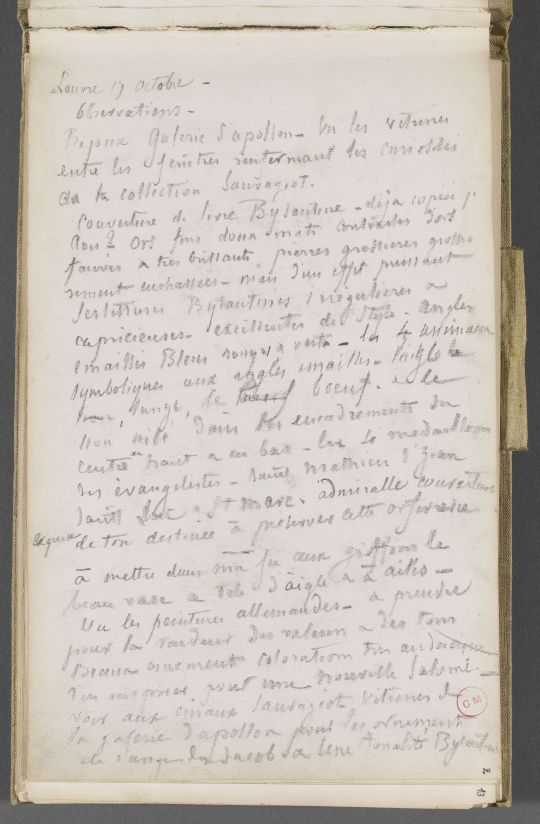 Louvre 17 octobre -
Observations -
Bijoux Galerie d'apollon - Vu les vitrines
entre les fenêtres renfermant les curiosités
de la collection Sauvageot.
Couverture de livre Byzantine - déjà copiée
Ors fins doux mats contrastés d'ors
fauves & très brillants pierres grossières grossiè
rement enchassées - mais d'un effet puissant
Byzantines irrégulières &
capricieuses - excellentes de Style. Angles
emaillés Bleus rouges & verts - les 4 animaux
symboliques aux angles émaillés - l'aigle le
lion, l'ange, le boeuf &
lion ailé dans les encadrements du
centre en haut & en bas - les 4 medaillons
des évangelistes - Saint Mathieu St Jean
Saint Luc & St Marc. admirable couverture
de ton destinée à préserver cette orfevrerie
à mettre dans ma aux griffons le
beau vase à tête d'aigle & à ailes -
Vu les peintures allemandes - à prendre
pour la des valeurs & des tons
Beaux ornement colorations
m'en inspirer pour une nouvelle Salomé -
voir aux émaux Sauvageot vitrines de
la galerie d'apollon pour les ornement
de l'ange du Jacob sa tonalité Byzantine
GM